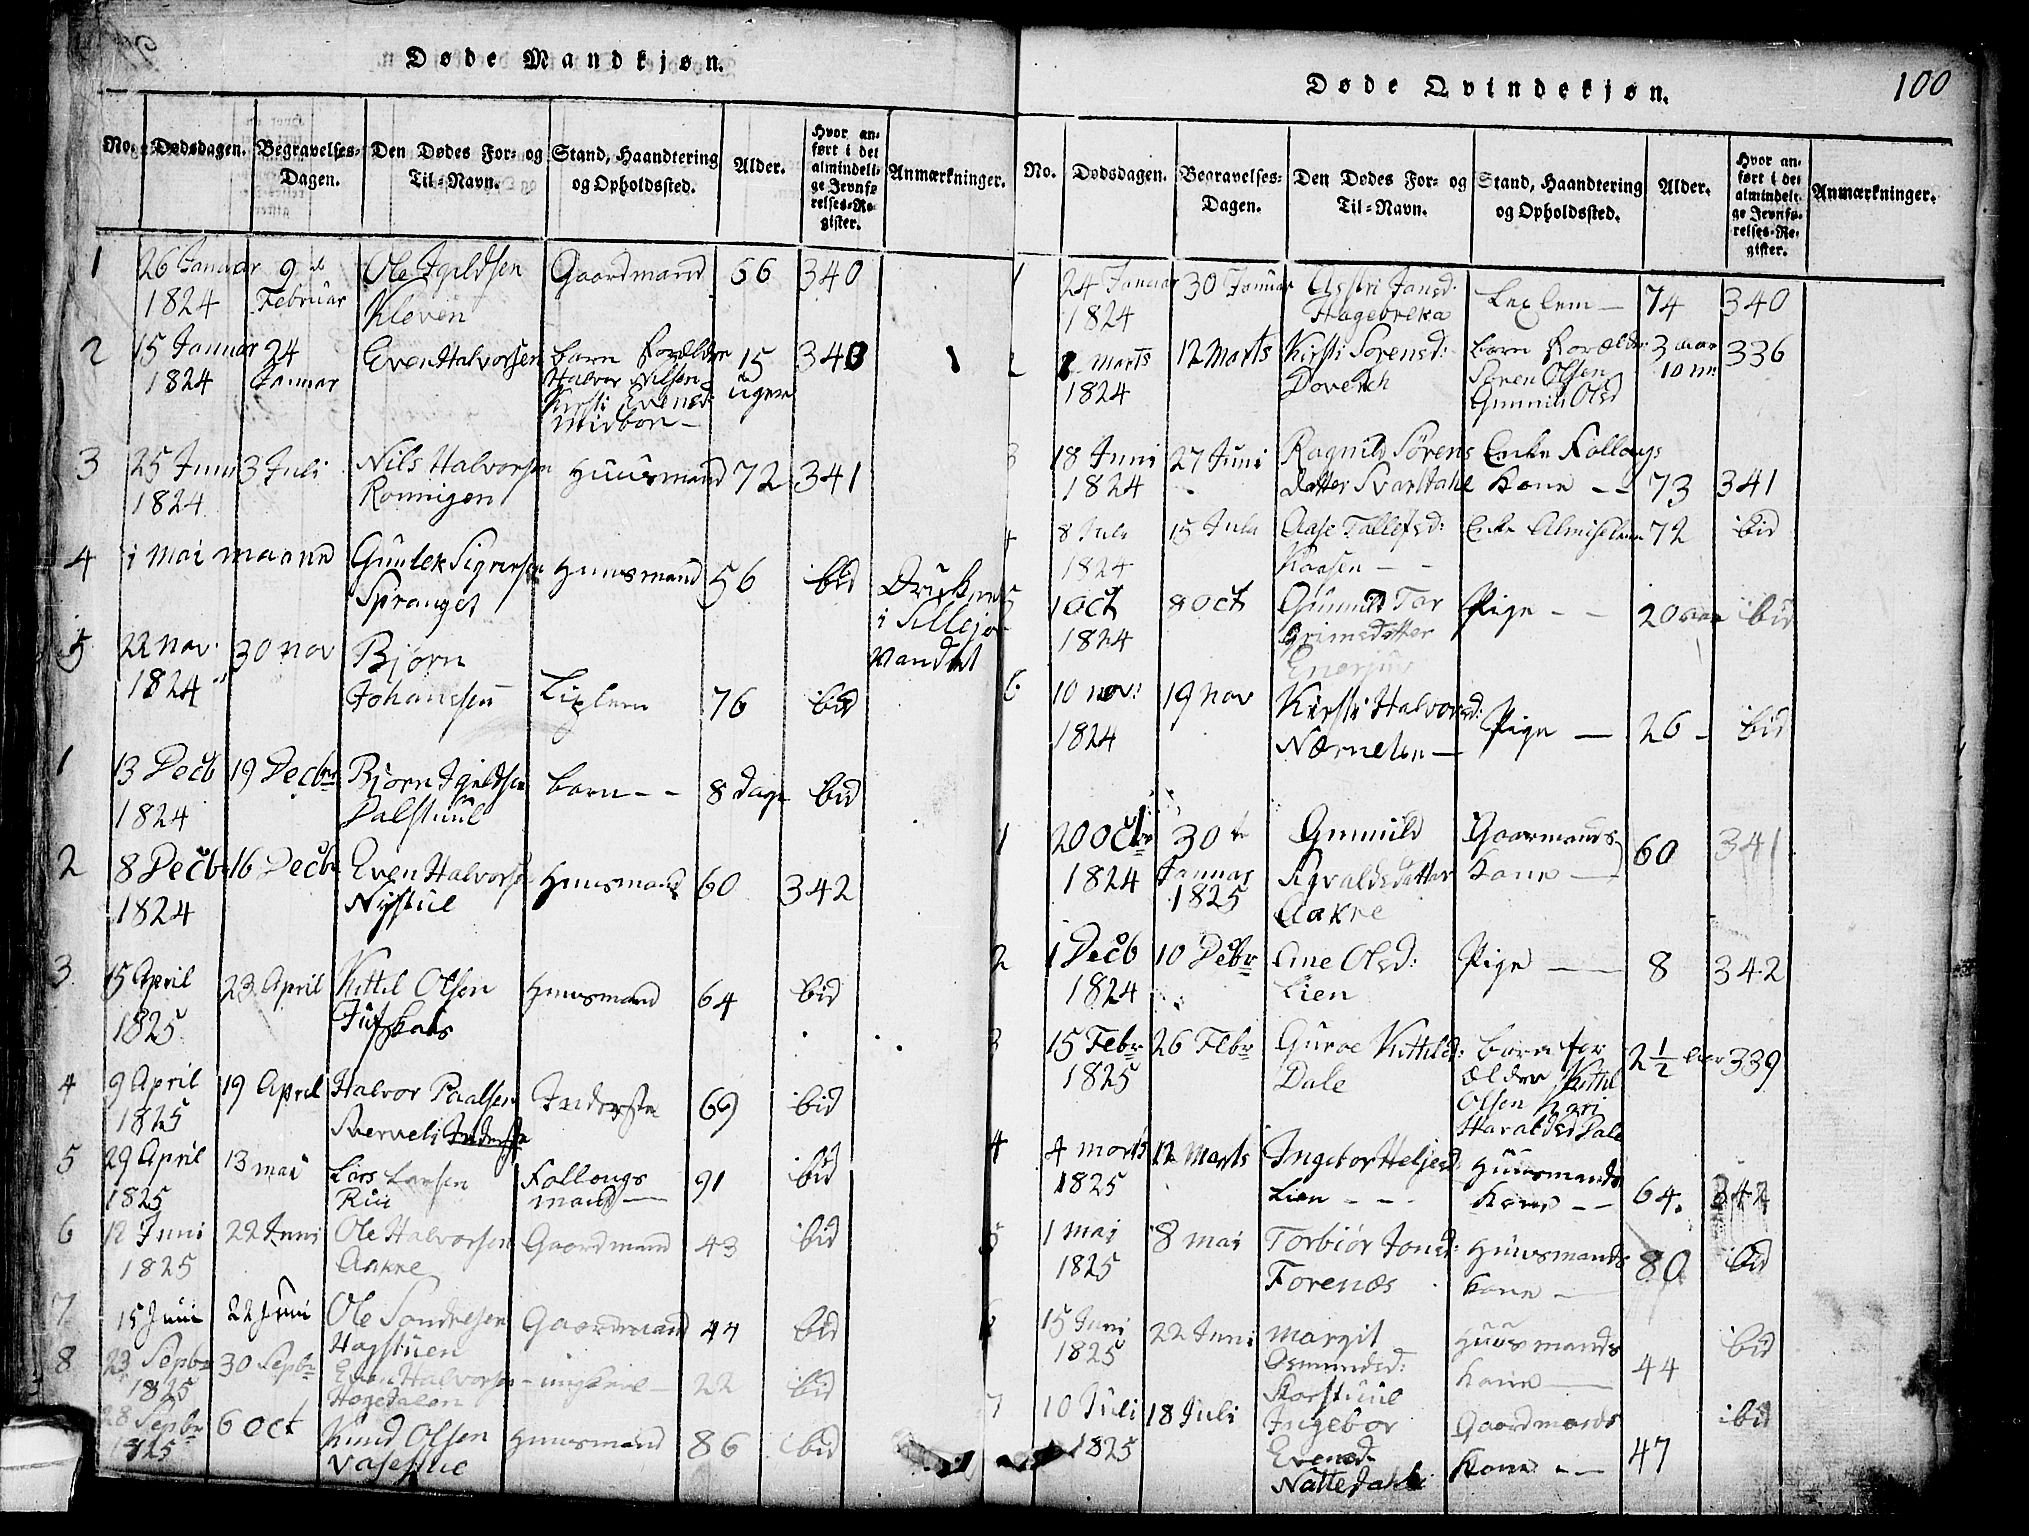 Døde Mandkjøn.
No. Dødsdagen. Begravelses-Dagen. Den Dødes For- og Til-Navn. Stand, Haandtering og Opholdssted. Alder. Hvor anført i det almindelige Jevnførelses-Register. Anmærkninger.
1 26 Januar 9de Ole Igildsen Gaardmand 56 340
1824 Februar Kleven
2 15 Januar 24 Even Halvorsen barn Forældre 15 340
1824 Januar Halvor Nilsen uger
Kirsti Evensd:
Midbøn
3 25 Juni 3 Juli Nils Halvorsen Huusmand 72 341
1824 Ronnigen
4 i Mai maaned Gunlek Sigursen Huusmand 56 ibid Druknet
Spranget i Sillejor
vandet
5 22 Nov 30 Nov Bjørn
1824 Johannsen Lixlem 76 ibid
1 13 Decb 19 Decbr Bjørn Igildsen barn -- 8 dage ibid
1824 Dalstuul
2 8 Decbr 16 Decbr Even Halvorsen Huusmand 60 342
1824 Nystul
3 15 April 23 April Kittil Olsen Huusmand 64 ibid
1825
4 9 April 19 April Halvor Paalsen Inderste 69 ibid
1825
5 29 April 13 mai Lars Larsen Follougs 91 ibid
1825 Rui mand
6 12 Juni 22 Juni Ole Halvorsen Gaardmand 43 ibid
1825 Aakre
7 15 Juni 22 Juni Ole Sondresen Gaardmand 44 ibid
Hagstuen
8 23 Sepbr 30 Sepbr Even Halvorsen ungkarl 22 ibid
1825 Hogedalen
28 Sepbr 6 Oct Knud Olsen Huusmand 86 ibid
1825
Døde Qvindekjøn. 100
No. Dødsdagen. Begravelses-Dagen. Den Dødes For- og Til-Navn. Stand, Haandtering og Opholdssted. Alder. Hvor anført i det almindelige Jevnførelses-Register. Anmærkninger.
1 24 Januar 30 Januar Asstri Jansd: Lexlem 74 340
1824 Hagebreka
2 Marts 12 Marts Kirsti Sorensd: barn Forældre 3 aar 336
1824 Søren Olsen 10 m
Gunnild Olsd
3 18 Juni 27 Juni Ragnild Sørens Enke Follougs
1824 datter Kone -- 73 341
4 8 Juli 15 Juli Aase Tollefsd: Enke 72 ibid
1824 Kaasen
5 1 Oct 8 Oct Gunnild Tar Pige -- 20 aar ibid
1824 Grimsdatter
6 10 nov: 19 nov Kirsti Halvorsd: Pige 26 ibid
1824
1 20 Octbr 30te Gunnild Gaarmands 60 341
1824 Januar Kone
1825 Aakre
2 1 Decb 10 Debr Ane Olsd: Pige 8 342
1824 Lien
3 15 Febr 26 Febr Guroe Kittilsd: barn for 2 1/2 aar 339
1825 Dale ældre Kittil
Olsen Kari
Haraldsd Dale
4 4 marts 12 Marts Ingebor Heljesd: Huusmands 64. 342
1825 Lien -- Kone --
5 1 mai 8 mai Torbiør Jonsd: Huusmands 80 ibid
1825 Forenæs Kone
6 15 Juni 22 Juni Margit Huusmands 44 ibid
1825 Osmundsd: Kone
7 10 Juli 18 Juli Ingebor Gaardmands 47 ibid
1825 Evensd. Kone --
Nattedahl